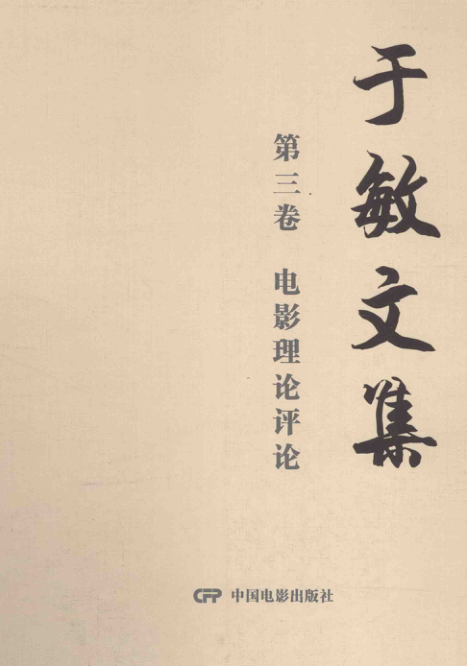 于敏文集
第三卷 电影理论评论
CFP 中国电影出版社